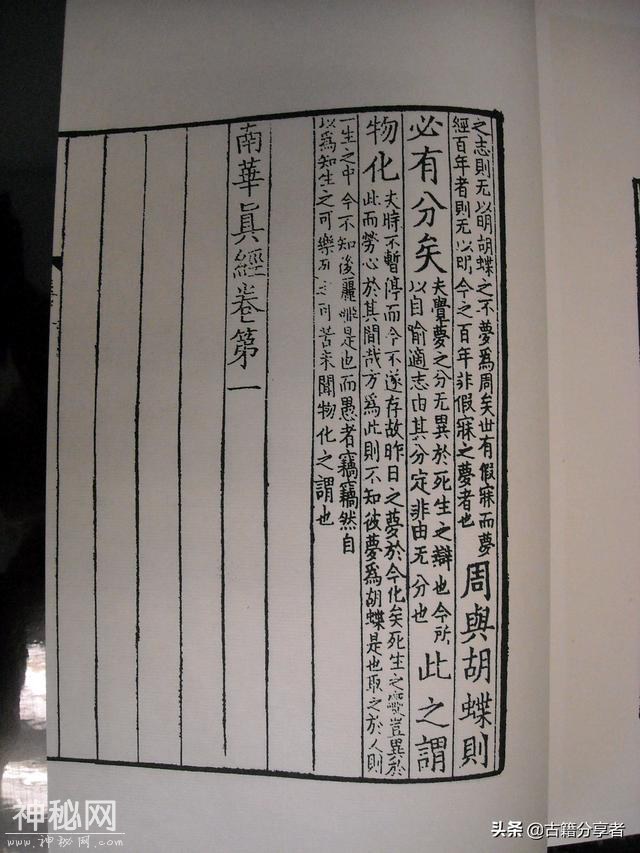 之志則无以明胡蝶之不夢爲周矣世有假寐而夢
經百年者則无以明今之百年非假寐之夢者也
周與胡蝶則
必有分矣
夫覺夢之分无異於死生之辯也今所
以自喻適志由其分定非由无分也
此之謂
物化
夫時不暫停而今不遂存故昨日之夢於今化矣死生之變豈異於
此而勞心於其間哉方爲此則不知彼夢爲胡蝶是也取之於人則
一生之中今不知後麗姬是也而愚者竊竊然自
以爲知生之可樂死之可苦未聞物化之謂也
南華眞經卷第一
神秘网
www.神秘网.com
头条 @古籍分享者